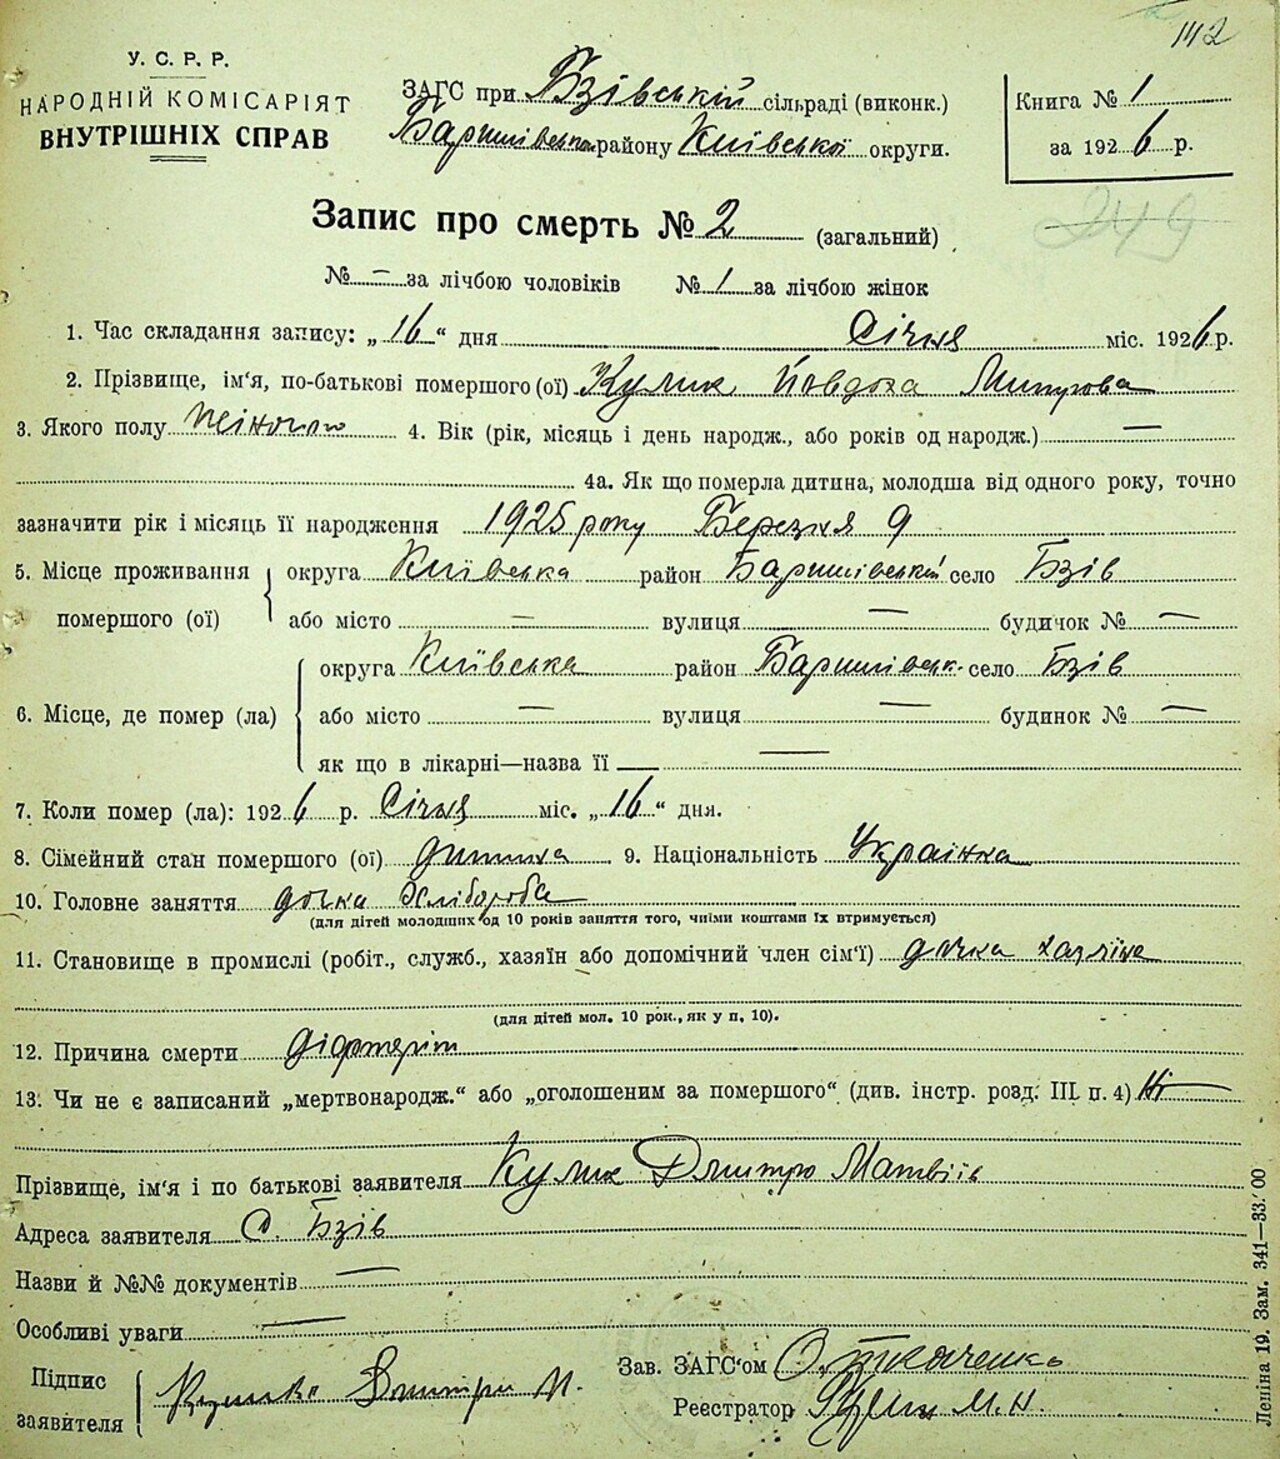 112
У. С. Р. Р.
НАРОДНІЙ КОМІСАРІЯТ
ВНУТРІШНІХ СПРАВ
ЗАГС при Бзівській сільраді (виконк.)
Баришівського району Київської округи.
Книга № 1
за 1926 р.
Запис про смерть № 2 (загальний)
249
№ — за лічбою чоловіків № 1 за лічбою жінок
1. Час складання запису: „16“ дня Січня міс. 1926 р.
2. Прізвище, ім‘я, по-батькові помершого (ої) Кулик Йовдоха Митрова
3. Якого полу жіночого 4. Вік (рік, місяць і день народж., або років од народж.) —
4а. Як що померла дитина, молодша від одного року, точно
зазначити рік і місяць її народження 1925 року Березня 9
5. Місце проживання помершого (ої) округа Київська район Баришівський село Бзів
або місто — вулиця — будичок № —
6. Місце, де помер (ла) округа Київська район Баришівськ. село Бзів
або місто — вулиця — будинок № —
як що в лікарні—назва її —
7. Коли помер (ла): 1926 р. Січня міс. „16“ дня.
8. Сімейний стан помершого (ої) дитина 9. Національність Українка
10. Головне заняття дочка Хлібороба
(для дітей молодших од 10 років заняття того, чиїми коштами їх втримується)
11. Становище в промислі (робіт., служб., хазяїн або допомічний член сім‘ї) дочка хазяїна
(для дітей мол. 10 рок., як у п. 10).
12. Причина смерти Діфтеріт
13. Чи не є записаний „мертвонародж.“ або „оголошеним за помершого“ (див. інстр. розд. III п. 4) Ні
Прізвище, ім‘я і по батькові заявителя Кулик Дмитро Матвіїв
Адреса заявителя С. Бзів
Назви й №№ документів —
Особливі уваги —
Підпис заявителя Дмитро М.
Зав. ЗАГС‘ом О. Ткаченко
Реєстратор М. Н.
Леніна 19. Зам. 341—33.